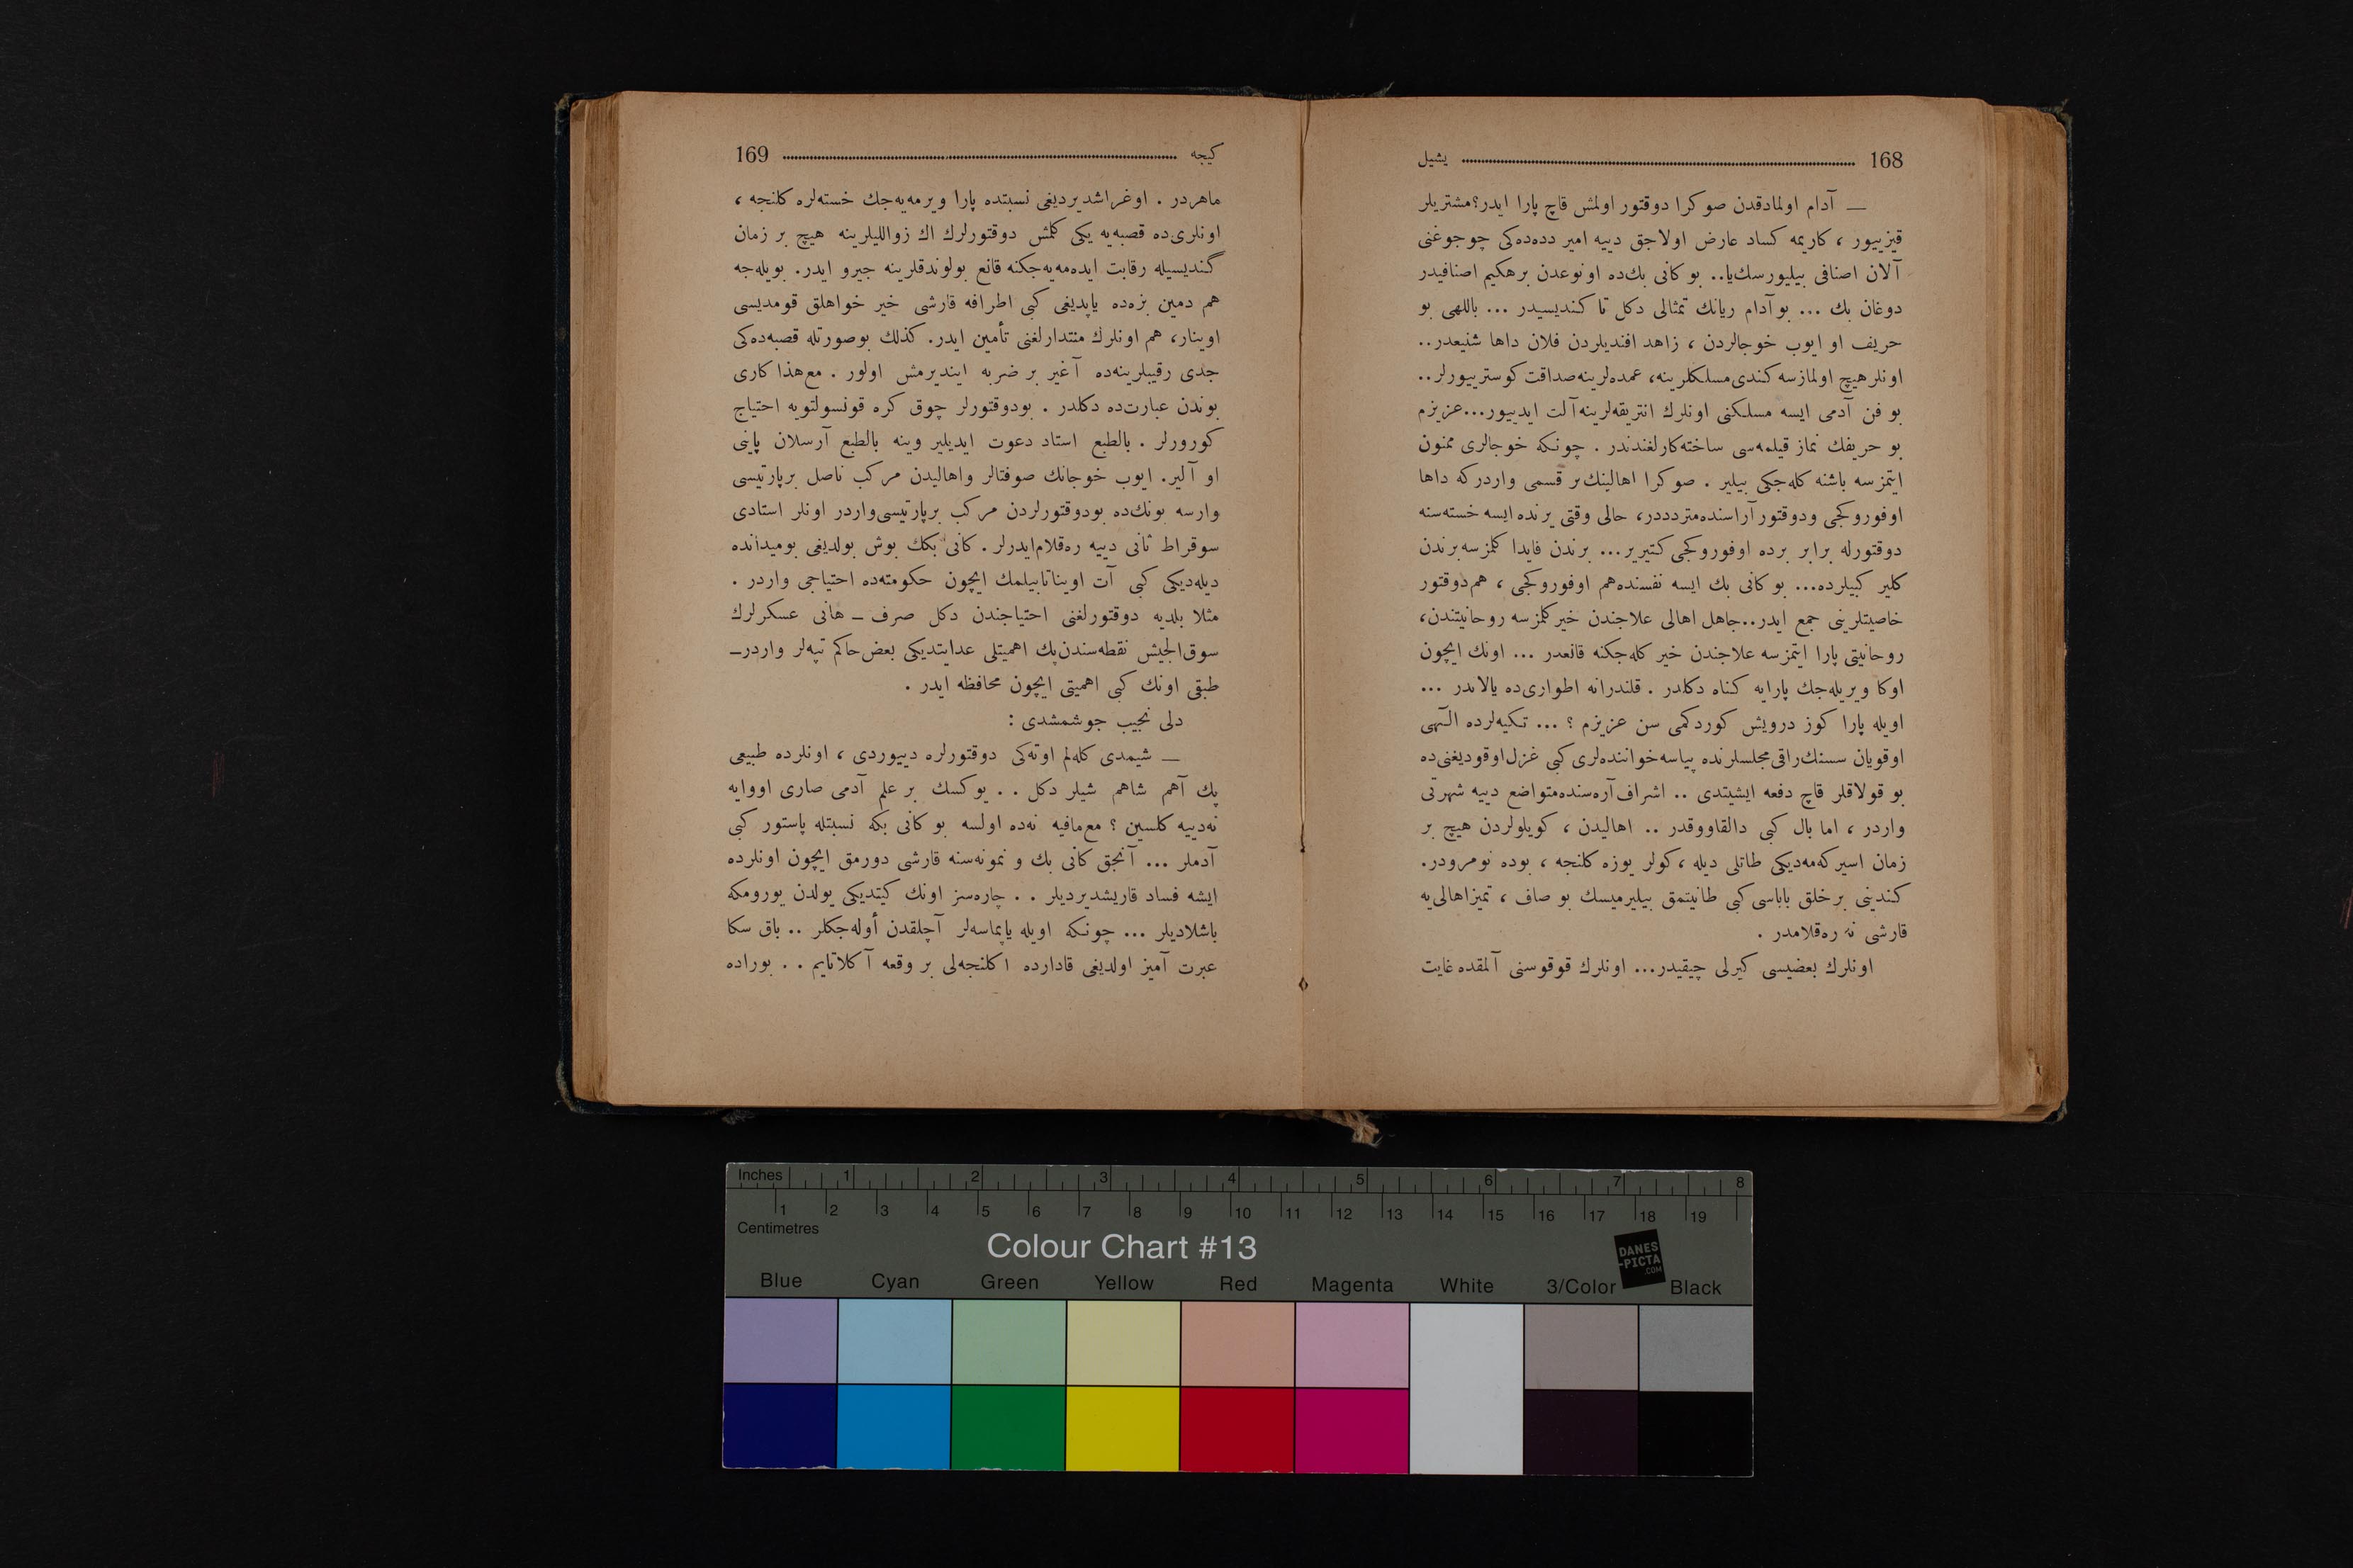 168 يشيل
— آدام اولمادقدن صوكرا دوقتور اولمش قاچ پارا ايدر؟ مشتريلر
قيزييور ، كاريمه كساد عارض اولاجق دييه امير دده‌ده‌كى چوجوغنى
آلان اصنافى بيليورسك‌يا.. بو كانى بك‌ده اونوعدن برهكيم اصنافيدر
دوغان بك ... بو آدام ريانك تمثالى دكل تا كنديسيدر ... باللهى بو
حريف او ايوب خوجالردن ، زاهد افنديلردن فلان داها شنيعدر..
اونلر هيچ اولمازسه كندى مسلكلرينه، عمده‌لرينه صداقت كوسترييورلر..
بو فن آدمى ايسه مسلكنى اونلرك انتريقه‌لرينه آلت ايدييور...عزيزم
بو حريفك نماز قيلمه‌سى ساخته‌كارلغندندر . چونكه خوجالرى ممنون
ايتمزسه باشنه كله‌جكى بيلير . صوكرا اهالينك بر قسمى واردركه داها
اوفوروكجى ودوقتور آراسنده متردددر، حالى وقتى يرنده ايسه خسته‌سنه
دوقتورله برابر برده اوفوروكجى كتيرير... برندن فايدا كلمزسه برندن
كلير كبيلرده... بو كانى بك ايسه نفسنده هم اوفوروكجى ، هم دوقتور
خاصيتلرينى جمع ايدر..جاهل اهالى علاجندن خير كلمزسه روحانيتندن،
روحانيتى پارا ايتمزسه علاجندن خير كله‌جكنه قانعدر ... اونك ايچون
اوكا ويريله‌جك پارايه كناه دكلدر . قلندرانه اطوارى‌ده يالاندر ...
اويله پارا كوز درويش كوردكمى سن عزيزم ؟ ... تكيه‌لرده الٓهى
اوقويان سسنك راقى مجلسلرنده پياسه خواننده‌لرى كبى غزل اوقوديغنى‌ده
بو قولاقلر قاچ دفعه ايشيتدى .. اشراف آره‌سنده متواضع دييه شهرتى
واردر ، اما بال كبى دالقاووقدر .. اهاليدن ، كويلولردن هيچ بر
زمان اسيركه‌مه‌ديكى طاتلى ديله ، كولر يوزه كلنجه ، بوده نومرودر.
كندينى برخلق باباسى كبى طانيتمق بيليرميسك بو صاف ، تميز اهالى‌يه
قارشى نه ره‌قلامدر .
اونلرك بعضيسى كيرلى چيقيدر... اونلرك قوقوسنى آلمقده غايت
كيجه 169
ماهردر . اوغراشديرديغى نسبتده پارا ويرمه‌يه‌جك خسته‌لره كلنجه ،
اونلرى‌ده قصبه‌يه يكى كلمش دوقتورلرك اك زوالليلرينه هيچ بر زمان
گنديسيله رقابت ايده‌مه‌يه‌جكنه قانع بولوندقلرينه جيرو ايدر. بويله‌جه
هم دمين بزه‌ده ياپديغى كبى اطرافه قارشى خير خواهلق قومديسى
اوينار، هم اونلرك منتدارلغنى تأمين ايدر. كذلك بوصورتله قصبه‌ده‌كى
جدى رقيبلرينه‌ده آغير بر ضربه اينديرمش اولور . مع‌هذا كارى
بوندن عبارت‌ده دكلدر . بودوقتورلر چوق كره قونسولتويه احتياج
كورورلر . بالطبع استاد دعوت ايديلير وينه بالطبع آرسلان پاينى
او آلير. ايوب خوجانك صوفتالر واهاليدن مركب ناصل برپارتيسى
وارسه بونك‌ده بودوقتورلردن مركب برپارتيسى‌واردر اونلر استادى
سوقراط ثانى دييه ره‌قلام ايدرلر . كانى بكك بوش بولديغى بوميدانده
ديله‌ديكى كبى آت اويناتابيلمك ايچون حكومته‌ده احتياجى واردر .
مثلا بلديه دوقتورلغنى احتياجندن دكل صرف ـ هانى عسكرلرك
سوق‌الجيش نقطه‌سندن‌پك اهميتلى عدايتديكى بعض حاكم تپه‌لر واردرـ
طبقى اونك كبى اهميتى ايچون محافظه ايدر .
دلى نجيب جوشمشدى :
— شيمدى كله‌لم اوته‌كى دوقتورلره دييوردى ، اونلرده طبيعى
پك آهم شاهم شيلر دكل . . يوكسك بر علم آدمى صارى اووايه
نه‌دييه كلسين ؟ مع‌مافيه نه‌ده اولسه بو كانى بكه نسبتله پاستور كبى
آدملر ... آنجق كانى بك و نمونه‌سنه قارشى دورمق ايچون اونلرده
ايشه فساد قاريشديرديلر . . چاره‌سز اونك كيتديكى يولدن يورومكه
باشلاديلر ... چونكه اويله ياپماسه‌لر آچلقدن أوله‌جكلر .. باق سكا
عبرت آميز اولديغى قادارده اكلنجه‌لى بر وقعه آكلاتايم . . بوراده
Inches 1 2 3 4 5 6 7 8
1 2 3 4 5 6 7 8 9 10 11 12 13 14 15 16 17 18 19
Centimetres
Colour Chart #13
DANES
-PICTA
.COM
Blue Cyan Green Yellow Red Magenta White 3/Color Black